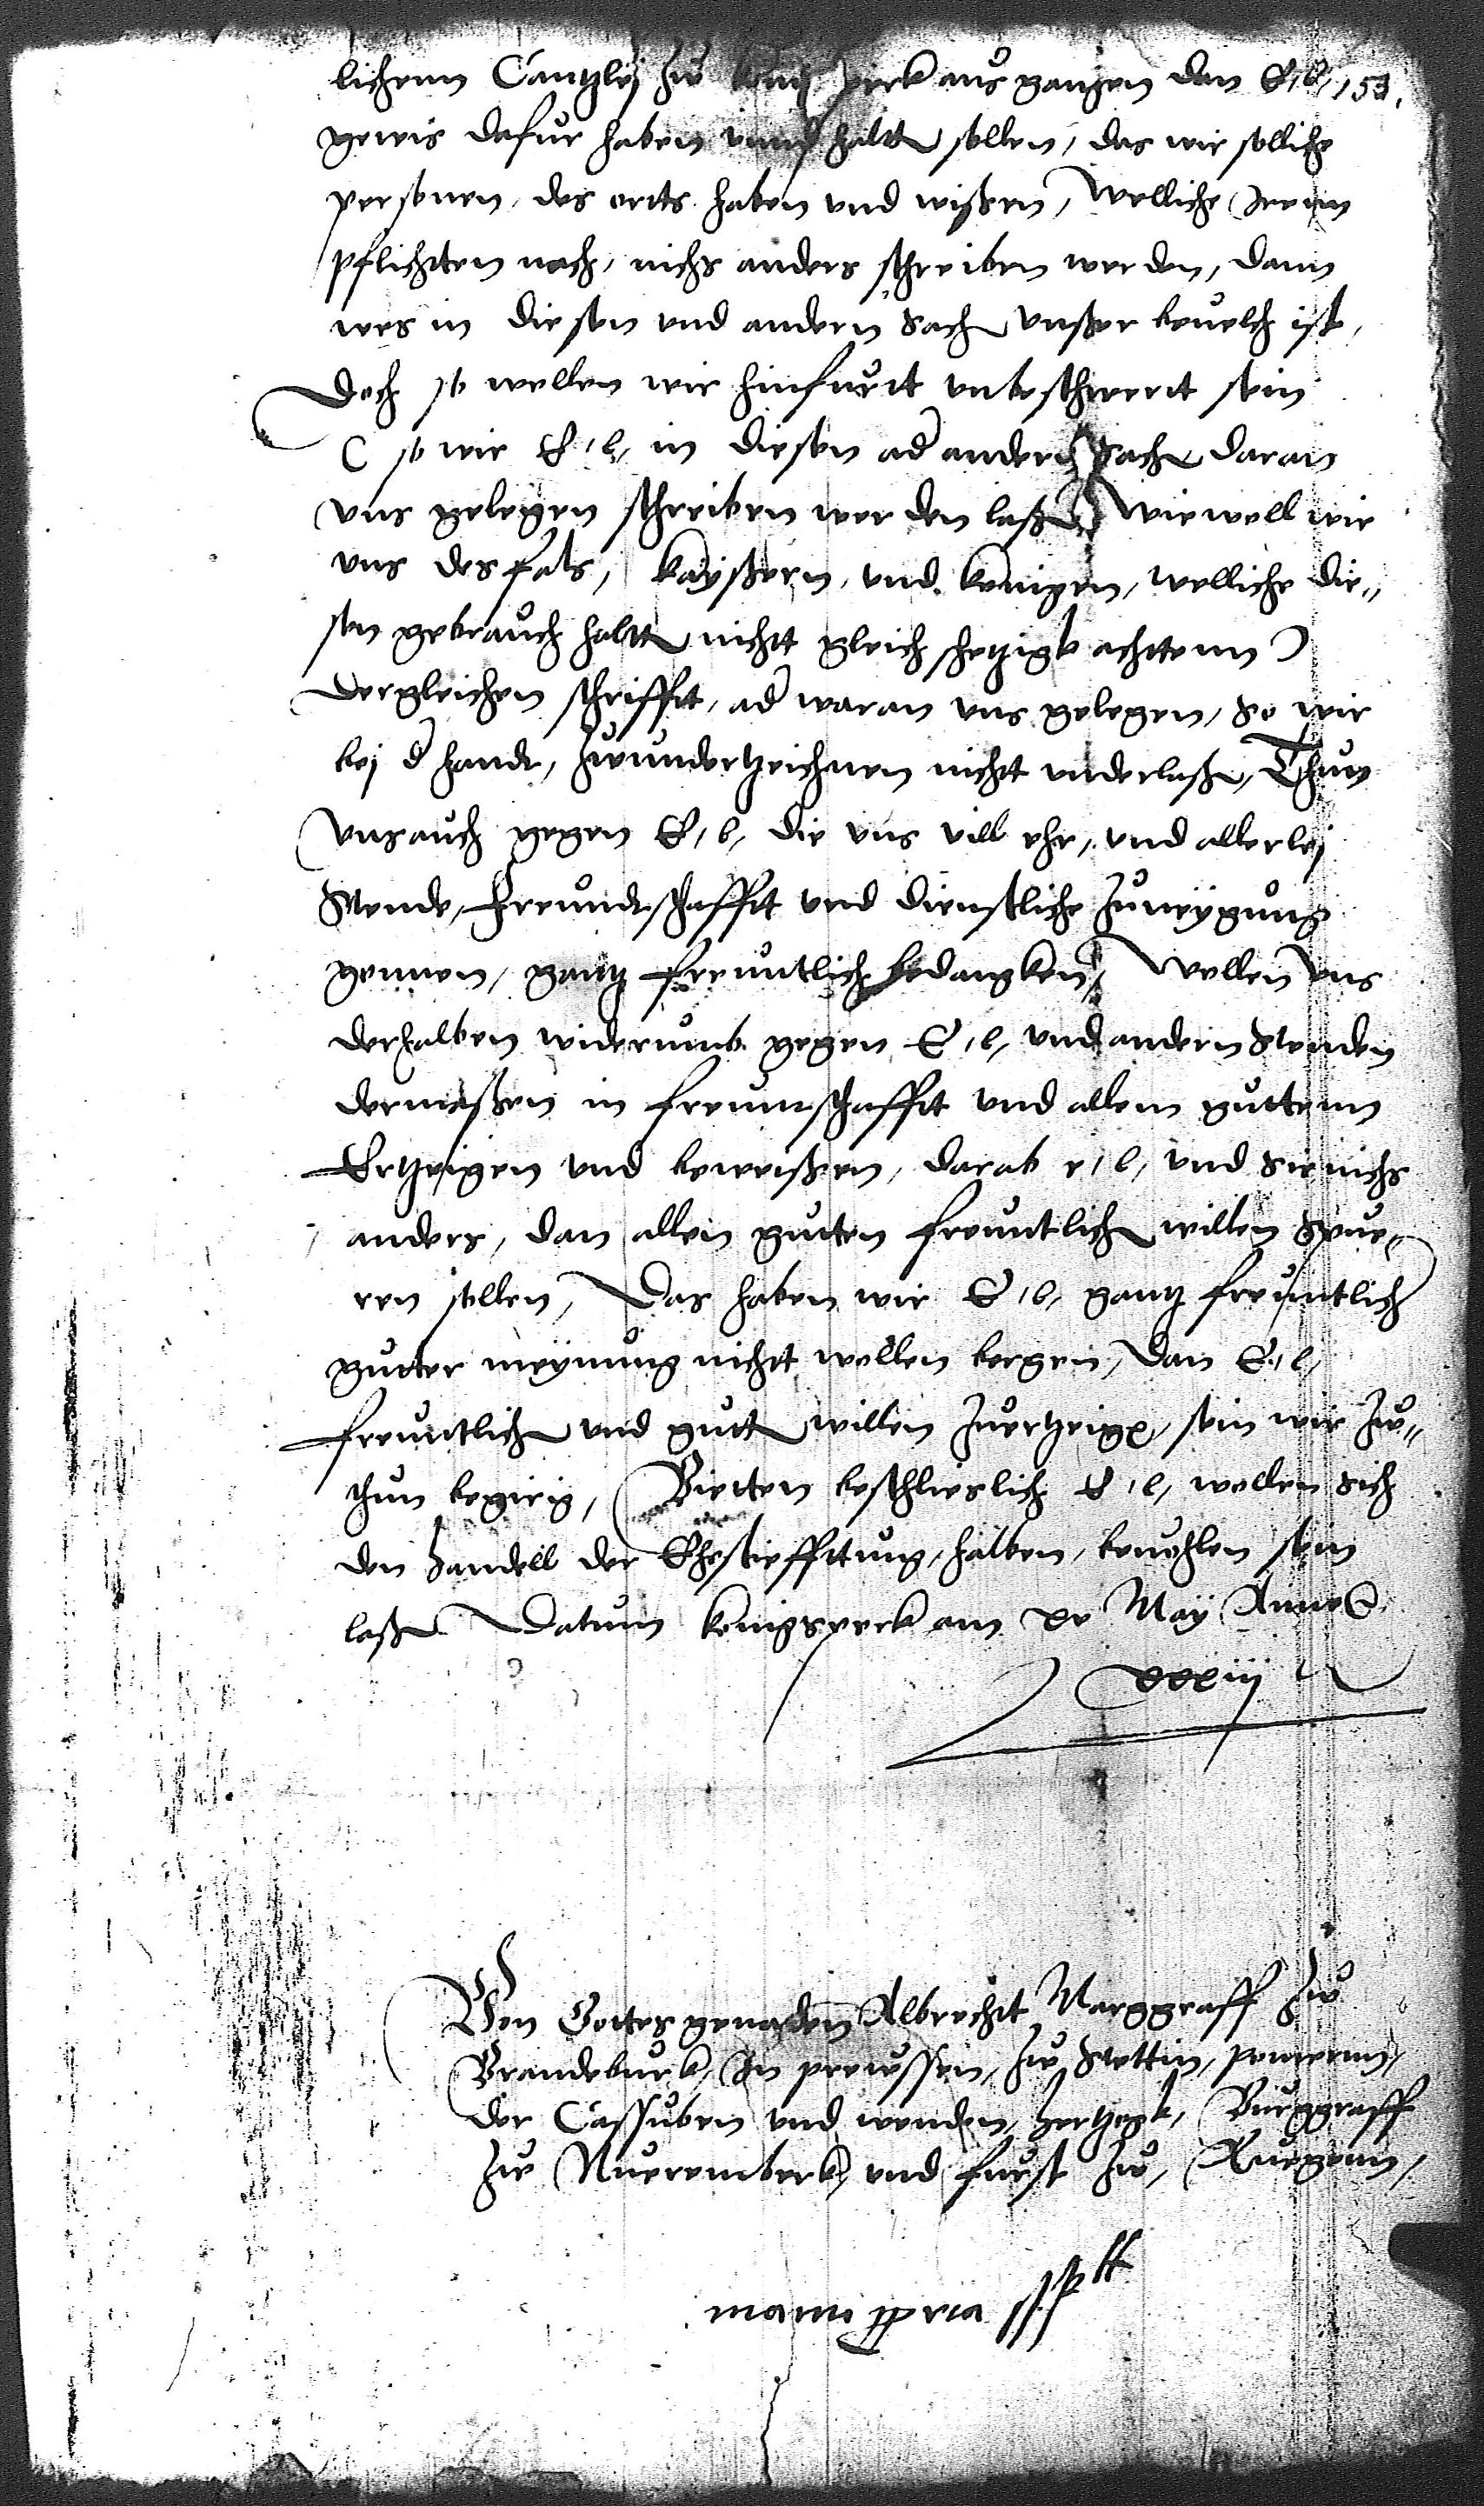 lichenn Cantzlej zw konigsperk aus gangen dan E, l, 153.
gewis dafur haben vnnd haltten sollen, das wir solliche
personen, des orts haben vnd wißen, Welliche Jrenn
pflichtten noch, nichs anders schreiben werden, dann
wes in diesen vnd andern Sachen vnßer beuelch ist,
Doch so wollen wir hinfurtt vnbeschwertt sein
( so wir E, l, in diesen ader andern Sachen daran
vns gelegen schreiben werden laßen, Wiewoll wir
vns des fals, kayßern, vnd konigen, welliche die„
sen gebrauch haltten nichtt gleich schetzigk achttenn )
Dergleichen schrifftt, ader waran vns gelegen, So wir
bej der handt, zwundertzeichnen nichtt vnderlaßen, Thun
Vns auch gegen E, l, die vns vill ehr, vnd allerlej
Stende, freundtschafftt vnd dienstliche zuneygung
gonnen, gantz freuntlich bedangken, Wollen vns
derhalben widerumb gegen E, l, vnd andern Stenden
dermaßen in freuntschafftt vnd allem guttenn
Ertzeigen vnd beweißen, darab e, l, vnd Sie nichs
anders, dan allen guten freuntlichen willen Spue„
ren sollen, Das haben wir E, l, gantz freuntlich
gutter meynung nichtt wollen bergen, Dan E, l,
freuntlichen vnd gutten willen zuertzeigen, sein wir zw„
thun begirig, Bietten beschlieslich E, l, wollen sich
den handell der Ehestiefftung, halben, beuohlen sein
laßen Datum konigsperk am xv May Anno &c
xxxiij
Von Gottes genaden Albrechtt Marggraff zw
Brandeburk, Jn preussen, zw Stettin, pomernn,
der Cassuben vnd wenden, hertzogk, Burggraff
zw Nuerembergk, vnd furst zw, Ruegenn,
manu ppria sspt